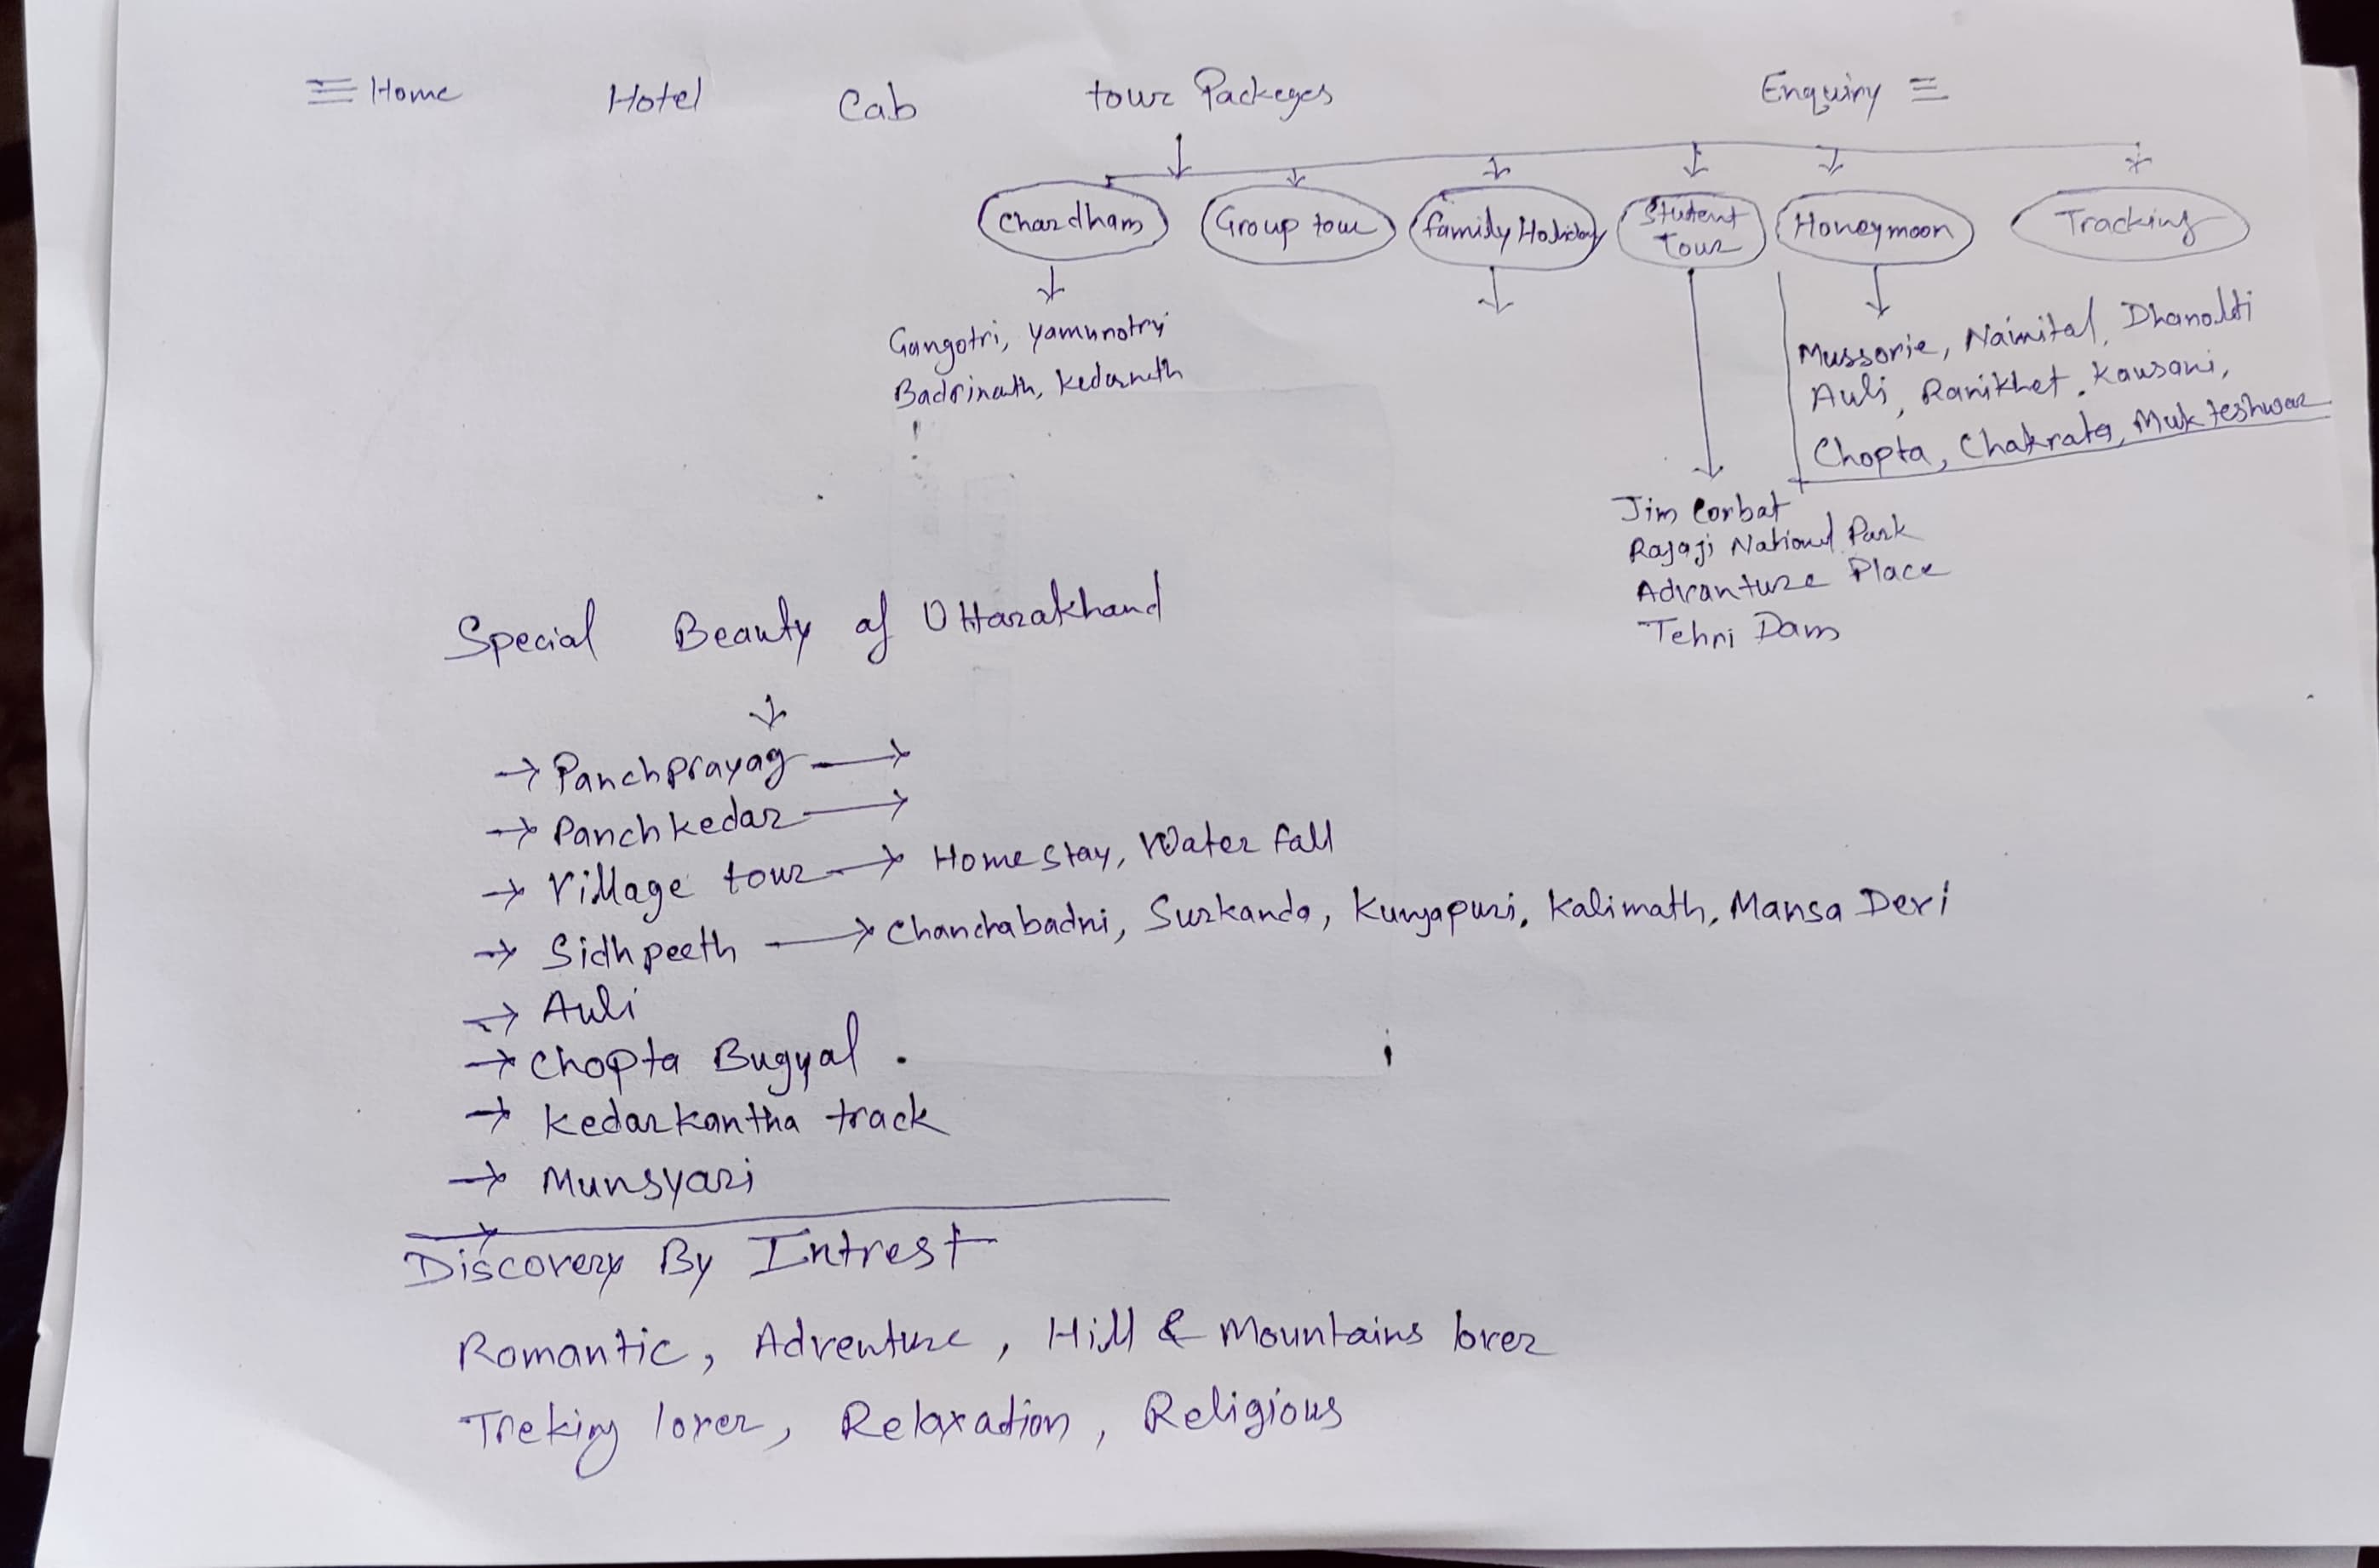 Home Hotel Cab tour Packeges Enquiry
Chardham Group tour family Holiday Student Tour Honeymoon Tracking
Gangotri, Yamunotry
Badrinath, Kedarnath
Mussorie, Nainital, Dhanolti
Auli, Ranikhet, Kausani,
Chopta, Chakrata, Mukteshwar
Jim Corbat
Rajaji National Park
Advanture Place
Tehri Dam
Special Beauty of Uttarakhand
→ Panchprayag →
→ Panchkedar →
→ Village tour → Home stay, Water fall
→ Sidhpeeth → Chandrabadni, Surkanda, Kunjapuri, Kalimath, Mansa Devi
→ Auli
→ Chopta Bugyal .
→ Kedarkantha track
→ Munsyari
Discovery By Intrest
Romantic, Adventure, Hill & Mountains lover
Treking lover, Relaxation, Religious